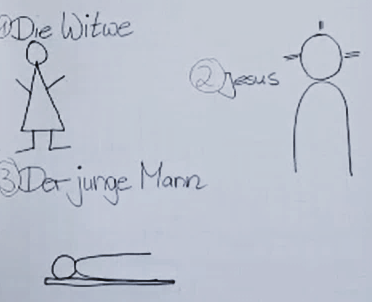 ① Die Witwe
② Jesus
③ Der junge Mann